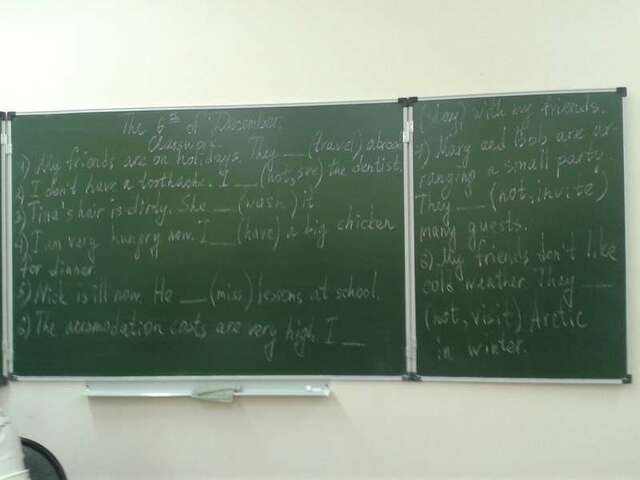 The 6th of December.
Classwork.
1) My friends are on holidays. They __ (travel) abroad
2) I don't have a toothache. I __ (not, see) the dentist.
3) Tina's hair is dirty. She __ (wash) it
4) I am very hungry now. I __ (have) a big chicken
for dinner.
5) Nick is ill now. He __ (miss) lessons at school.
6) The accomodation costs are very high. I __
(stay) with my friends.
7) Mary and Bob are ar-
ranging a small party.
They __ (not, invite)
many guests.
8) My friends don't like
cold weather. They __
(not, visit) Arctic
in winter.